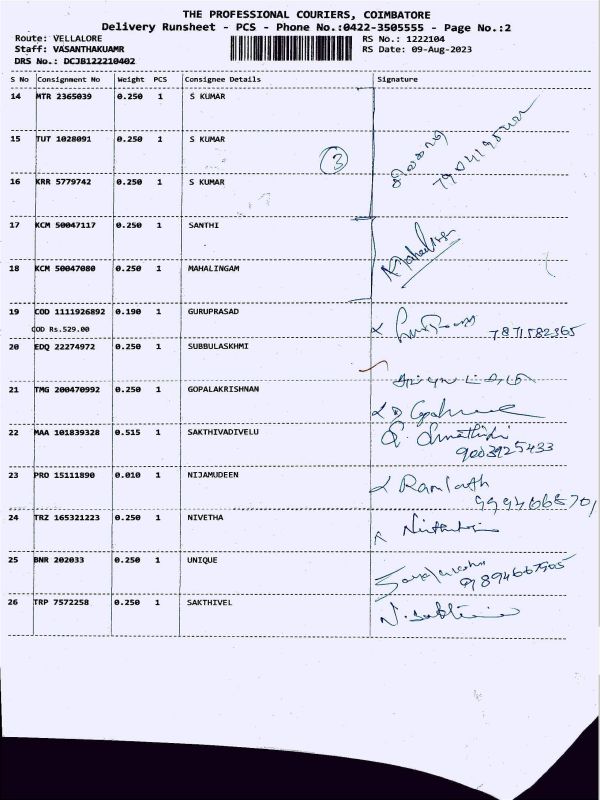 THE PROFESSIONAL COURIERS, COIMBATORE
Delivery Runsheet - PCS - Phone No.:0422-3505555 - Page No.:2
Route: VELLALORE
RS No.: 1222104
Staff: VASANTHAKUAMR
RS Date: 09-Aug-2023
DRS No.: DCJB122210402
S No Consignment No Weight PCS Consignee Details Signature
14 MTR 2365039 0.250 1 S KUMAR
15 TUT 1028091 0.250 1 S KUMAR
3
16 KRR 5779742 0.250 1 S KUMAR
17 KCM 50047117 0.250 1 SANTHI
18 KCM 50047080 0.250 1 MAHALINGAM
19 COD 1111926892 0.190 1 GURUPRASAD 7871582365
COD Rs.529.00
20 EDQ 22274972 0.250 1 SUBBULASKHMI
21 TMG 200470992 0.250 1 GOPALAKRISHNAN
22 MAA 101839328 0.515 1 SAKTHIVADIVELU
9003925433
23 PRO 15111890 0.010 1 NIJAMUDEEN
24 TRZ 165321223 0.250 1 NIVETHA
25 BNR 202033 0.250 1 UNIQUE
26 TRP 7572258 0.250 1 SAKTHIVEL